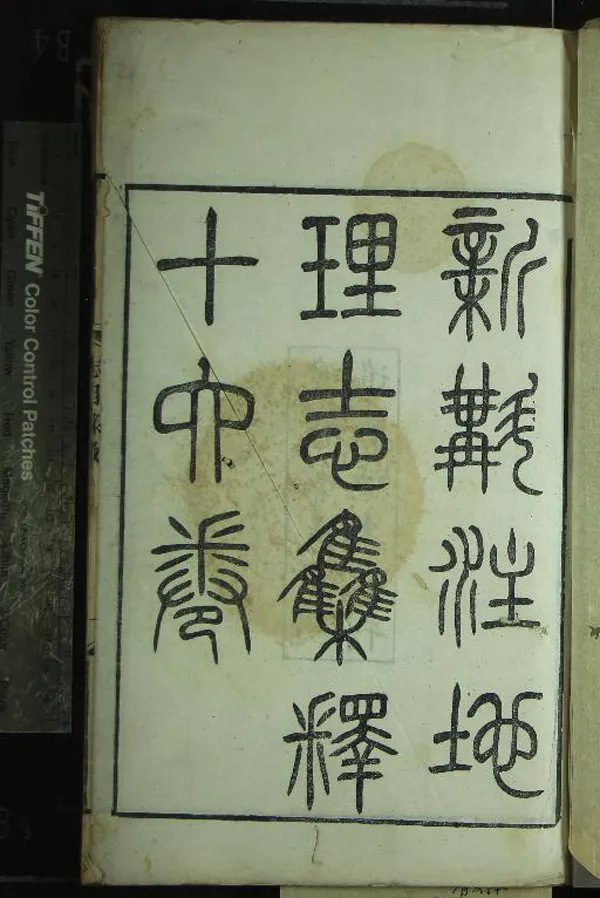 新斠注地
理志集釋
十六卷
TIFFEN Color Control Patches
Blue Cyan Green Yellow Red Magenta